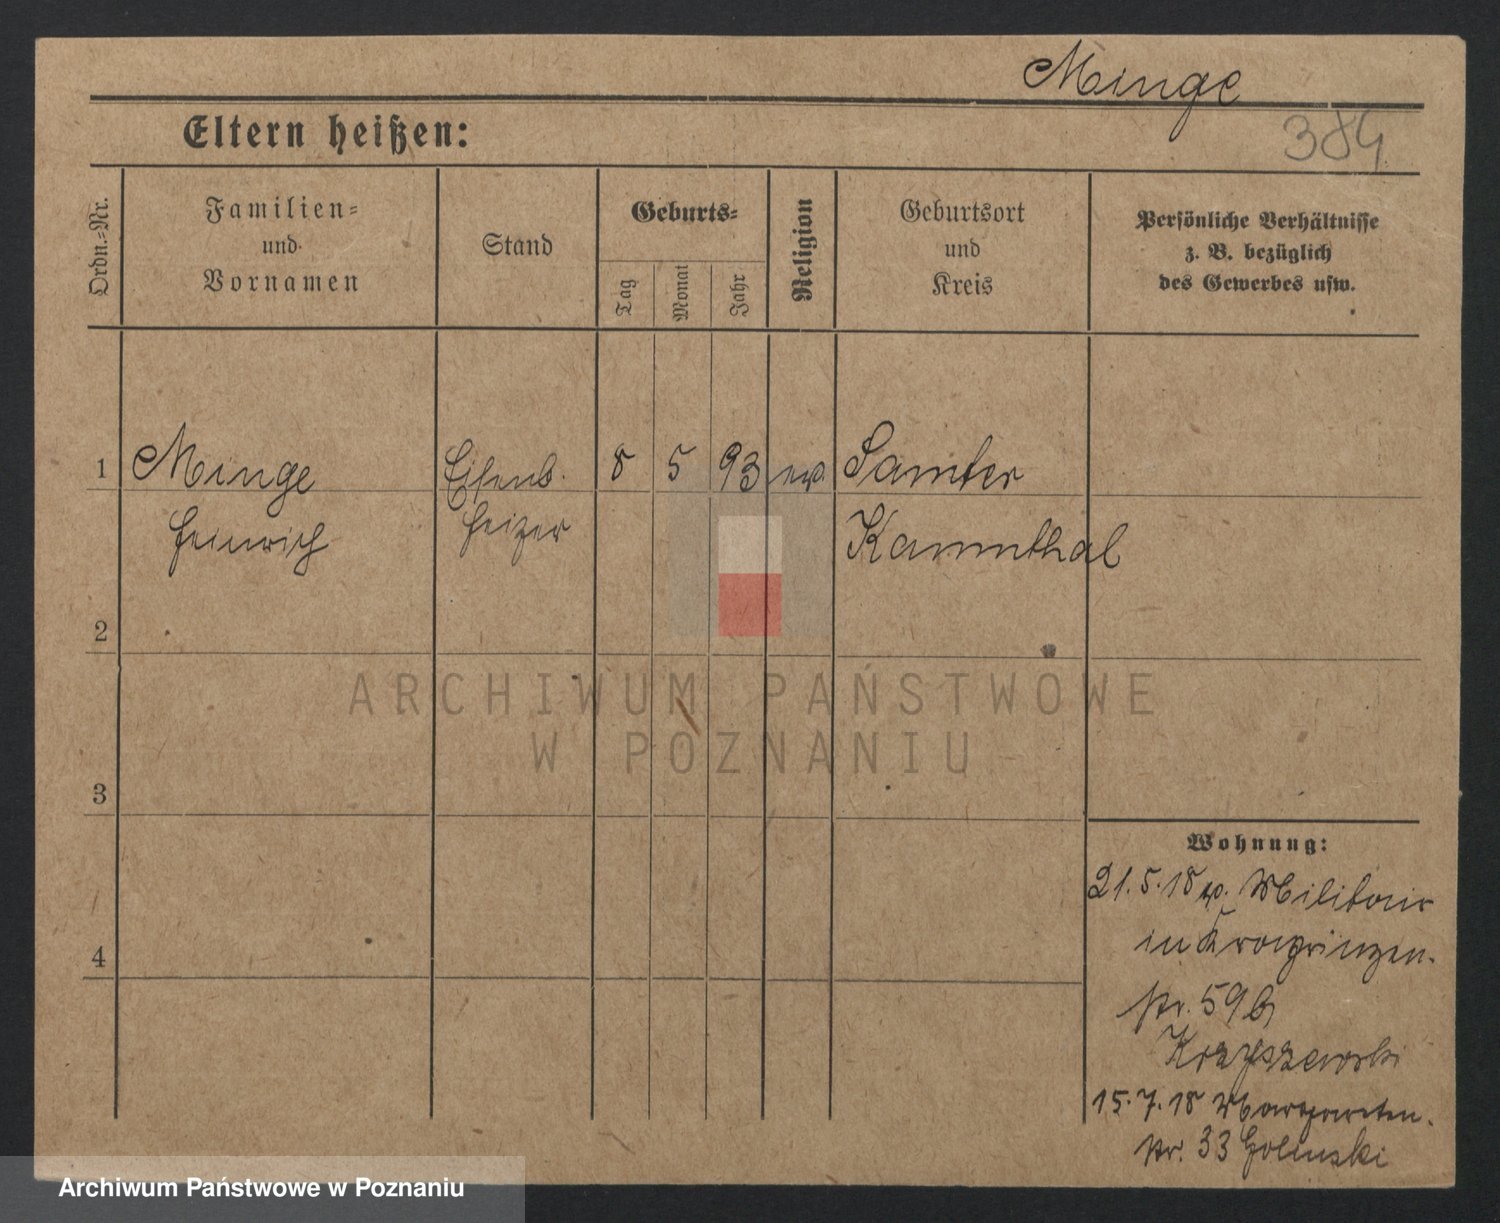 Minge
384
Eltern heißen:
Ordn.-Nr.
Familien-
und
Vornamen
Stand
Geburts-
Tag
Monat
Jahr
Religion
Geburtsort
und
Kreis
Persönliche Verhältnisse
z. B. bezüglich
des Gewerbes usw.
1 Minge Eisenb. 8 5 93 ev. Samter
Heinrich heizer Kammthal
2
3
4
ARCHIWUM PAŃSTWOWE
W POZNANIU
Wohnung:
21.5.18 v. Militair
in Kronprinzen-
str. 59b
Krzyszewski
15.7.18 Margareten-
str. 33 Golinski
Archiwum Państwowe w Poznaniu